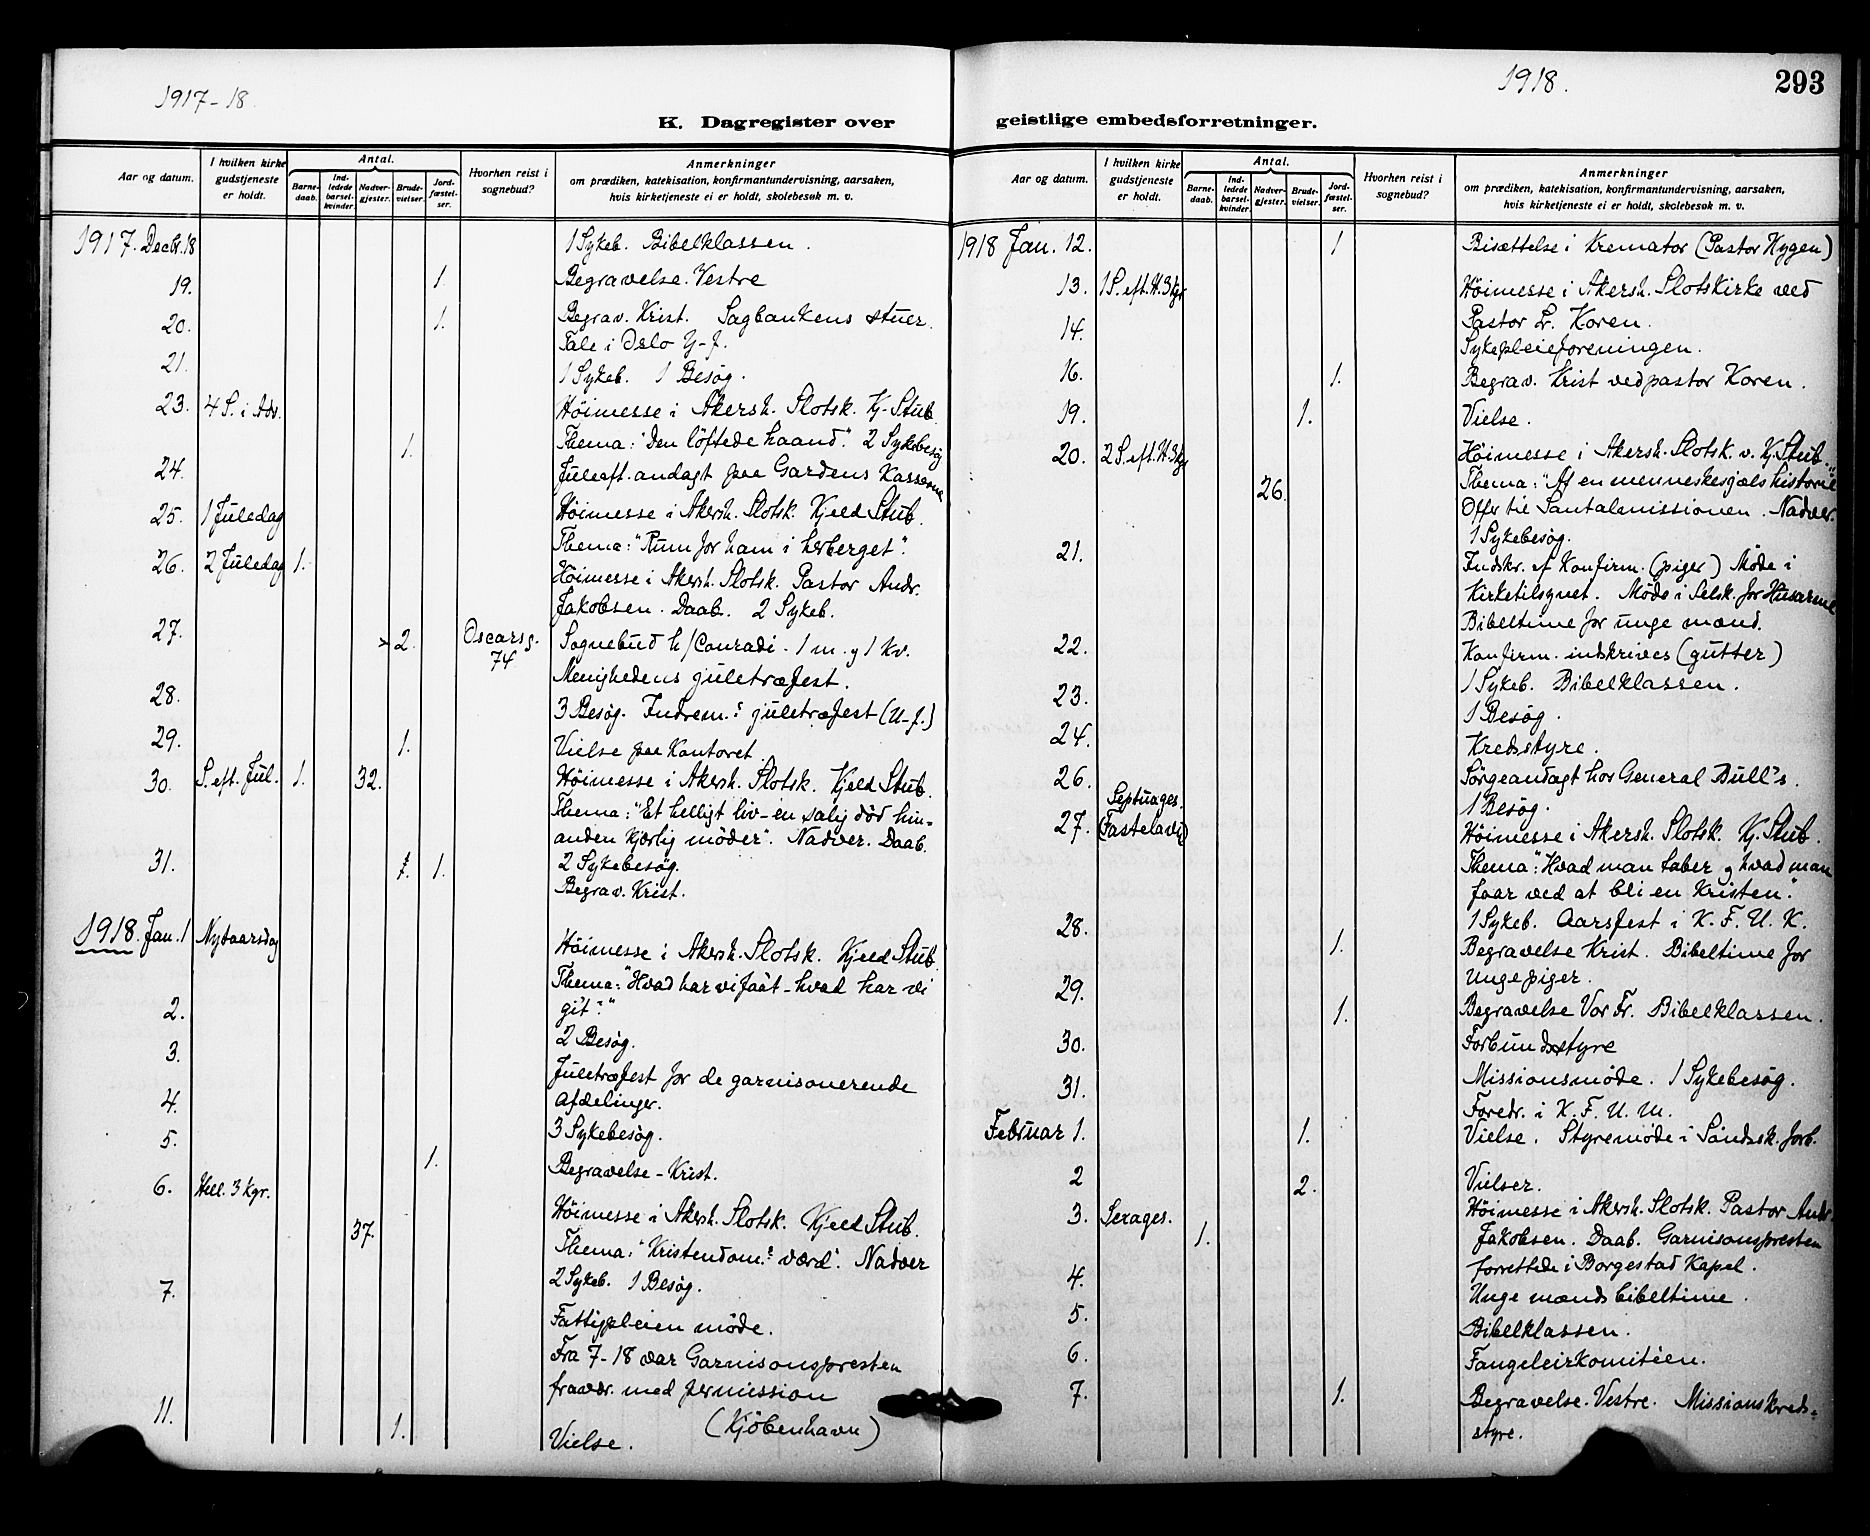 1917-18.
K. Dagregister over
Aar og datum.
I hvilken kirke gudstjeneste er holdt.
Antal.
Barne-daab.
Ind-ledede barsel-kvinder.
Nadver-gjester.
Brude-vielser.
Jord-fæstel-ser.
Hvorhen reist i sognebud?
Anmerkninger
om prædiken, katekisation, konfirmantundervisning, aarsaken,
hvis kirketjeneste ei er holdt, skolebesøk m. v.
1917. Decbr. 18 1 Sykeb. Bibelklassen.
19. 1. Begravelse. Vestre
20. 1. Begrav. Krist. Sagbankens stuer.
Tale i Oslo Y-f.
21. 1 Sykeb. 1 Besøg.
23. 4 S. i Adv. Høimesse i Akersh. Slotsk. Kj. Stub
1. Thema: "Den löftede haand". 2 Sykebesøg
24. Juleaft. andagt paa Gardens Kasserne
25. 1 Juledag Høimesse i Akersh. Slotsk. Kjeld Stub.
Thema: "Rum for ham i herberget".
26. 2 Juledag 1. Høimesse i Akersh. Slotsk. Pastor Andr.
Jakobsen. Daab. 2 Sykeb.
27. 2. Oscarsg. 74 Sognebud h/Conradi. 1 m. g 1 kv.
Menighedens juletræfest.
28. 3 Besøg. Indrem.s juletræfest (U-f.)
29. 1. Vielse paa Kontoret
30. S. eft. Jul. 1. 32. Høimesse i Akersh. Slotsk. Kjeld Stub.
Thema: "Et helligt liv - en salig död hin-
anden kjærlig möder". Nadver. Daab.
2 Sykebesøg.
31. 1. 1. Begrav. Krist.
1918. Jan. 1 Nytaarsdag Høimesse i Akersh. Slotsk. Kjeld Stub.
Thema: "Hvad har vi faat - hvad har vi
git?"
2. 2 Besøg.
3. Juletræfest for de garnisonerende
Afdelinger.
4. 3 Sykebesøg.
5. 1. Begravelse - Krist.
6. Hell. 3 Kgr. Høimesse i Akersh. Slotsk. Kjeld Stub.
37. Thema: "Kristendom.s værd". Nadver
2 Sykeb. 1 Besøg.
7. Fattigpleien möde.
Fra 7-18 var Garnisonspresten
fravær. med permission
(Kjöbenhavn)
11. 1. Vielse.
1918.
293
geistlige embedsforretninger.
Aar og datum.
I hvilken kirke gudstjeneste er holdt.
Antal.
Barne-daab.
Ind-ledede barsel-kvinder.
Nadver-gjester.
Brude-vielser.
Jord-fæstel-ser.
Hvorhen reist i sognebud?
Anmerkninger
om prædiken, katekisation, konfirmantundervisning, aarsaken,
hvis kirketjeneste ei er holdt, skolebesøk m. v.
1918 Jan. 12. 1 Bisættelse i Kremator (Pastor Hygen)
13. 1 S. eft. H. 3 kgr Høimesse i Akersh. Slotskirke ved
Pastor Lr. Koren.
14. Sykepleieforeningen.
16. 1. Begrav. Krist ved pastor Koren.
19. 1. Vielse.
20. 2 S. eft. H. 3 kg Høimesse i Akersh. Slotsk. v. Kj. Stub.
26. Thema: "Af en menneskesjæls historie"
Offer til Santalmissionen. Nadver.
1 Sykebesøg.
21. Indskr. af Konfirm. (piger) Møde i
Kirketilsynet. Møde i Selsk. for Husarme
Bibeltime for unge mænd.
22. Konfirm. indskrives (gutter)
1 Sykeb. Bibelklassen.
23. 1 Besøg.
24. Kredsstyre.
26. Sørgeandagt hos General Bull's.
1 Besøg.
27. Septuages. (Fastelavn) Høimesse i Akersh. Slotsk. Kj. Stub.
Thema: "Hvad man taber g hvad man
faar ved at bli en Kristen".
1 Sykeb. Aarsfest i K. F. U. K.
28. 1. Begravelse Krist. Bibeltime for
Unge piger.
29. 1. Begravelse Vor Fr. Bibelklassen.
30. Forbundsstyre
31. Missionsmøde. 1 Sykebesøg.
Foredr. i K. F. U. M.
Februar 1. 1. Vielse. Styremøde i Søndsk. forb.
2 2. Vielser.
3. Sexages. Høimesse i Akersh. Slotsk. Pastor Andr.
1. Jakobsen. Daab. Garnisonspresten
forrettede i Borgestad Kapel.
4. Unge mænds bibeltime.
5. Bibelklassen.
6. Fangeleirkomitéen.
7. 1. Begravelse. Vestre. Missionskreds-
styre.